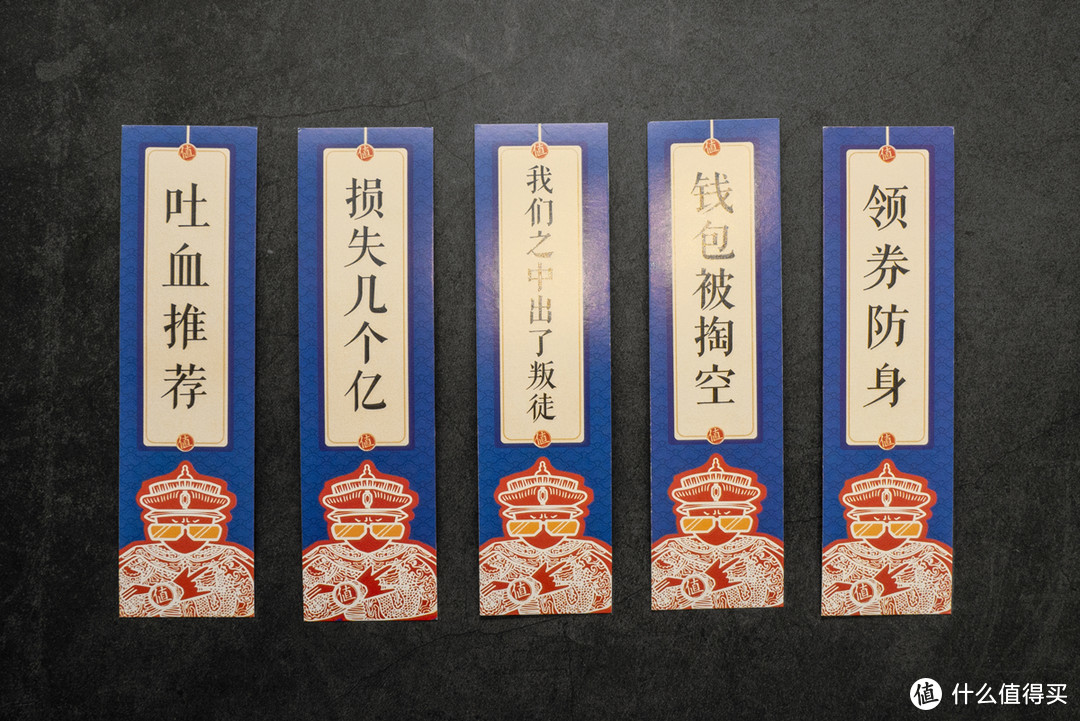 值
吐血推荐
值
值
值
损失几个亿
值
值
值
我们之中出了叛徒
值
值
值
钱包被掏空
值
值
值
领券防身
值
值
值 什么值得买